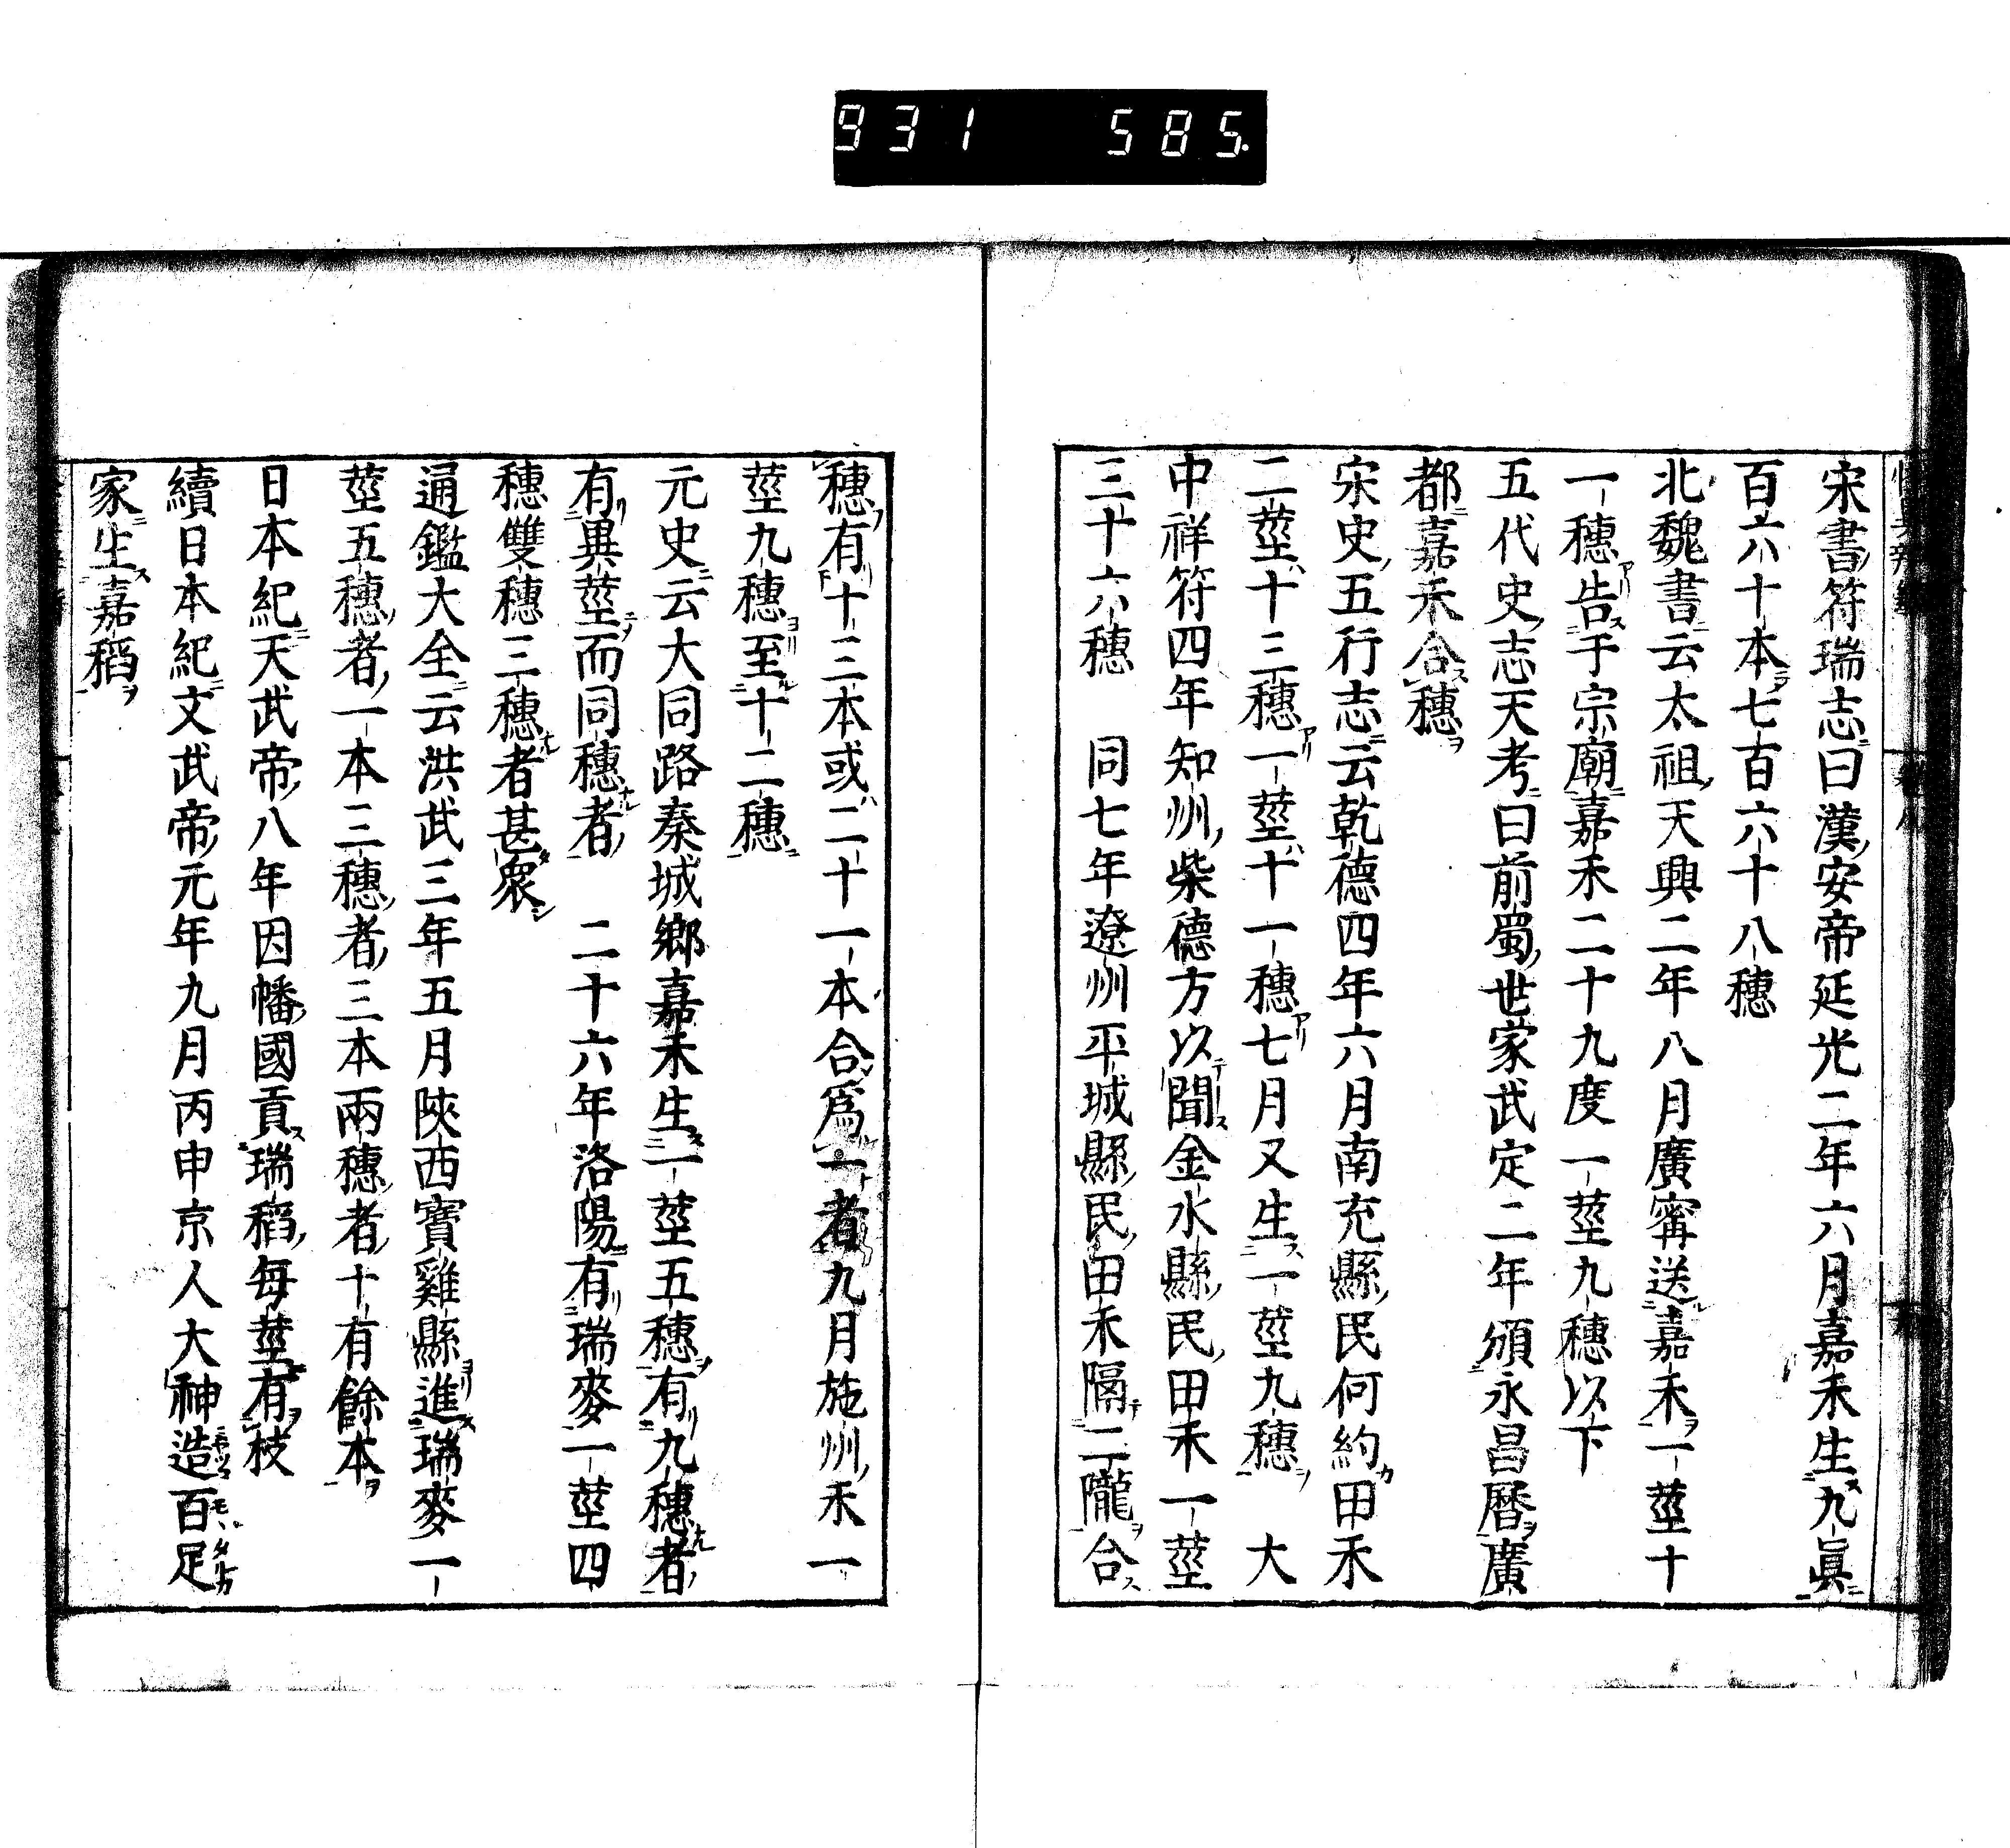 931 585.
宋書符瑞志曰漢安帝延光二年六月嘉禾生九眞
百六十本七百六十八穗
北魏書云太祖天興二年八月廣寗送嘉禾一莖十
一穗告于宗廟嘉禾二十九度一莖九穗以下
五代史志天考曰前蜀世家武定二年頒永昌曆廣
都嘉禾合穗
宋史五行志云乾德四年六月南充縣民何約田禾
二莖十三穗一莖十一穗七月又生一莖九穗 大
中祥符四年知州柴德方以聞金水縣民田禾一莖
三十六穗 同七年遼州平城縣民田禾隔二隴合
穗有十三本或二十一本合爲一者九月施州禾一
莖九穗至十二穗
元史云大同路秦城鄉嘉禾生一莖五穗有九穗者
有異莖而同穗者 二十六年洛陽有瑞麥一莖四
穗雙穗三穗者甚衆
通鑑大全云洪武三年五月陝西寶雞縣進瑞麥一
莖五穗者一本三穗者三本兩穗者十有餘本
日本紀天武帝八年因幡國貢瑞稻每莖有枝
續日本紀文武帝元年九月丙申京人大神造百足
家生嘉稻